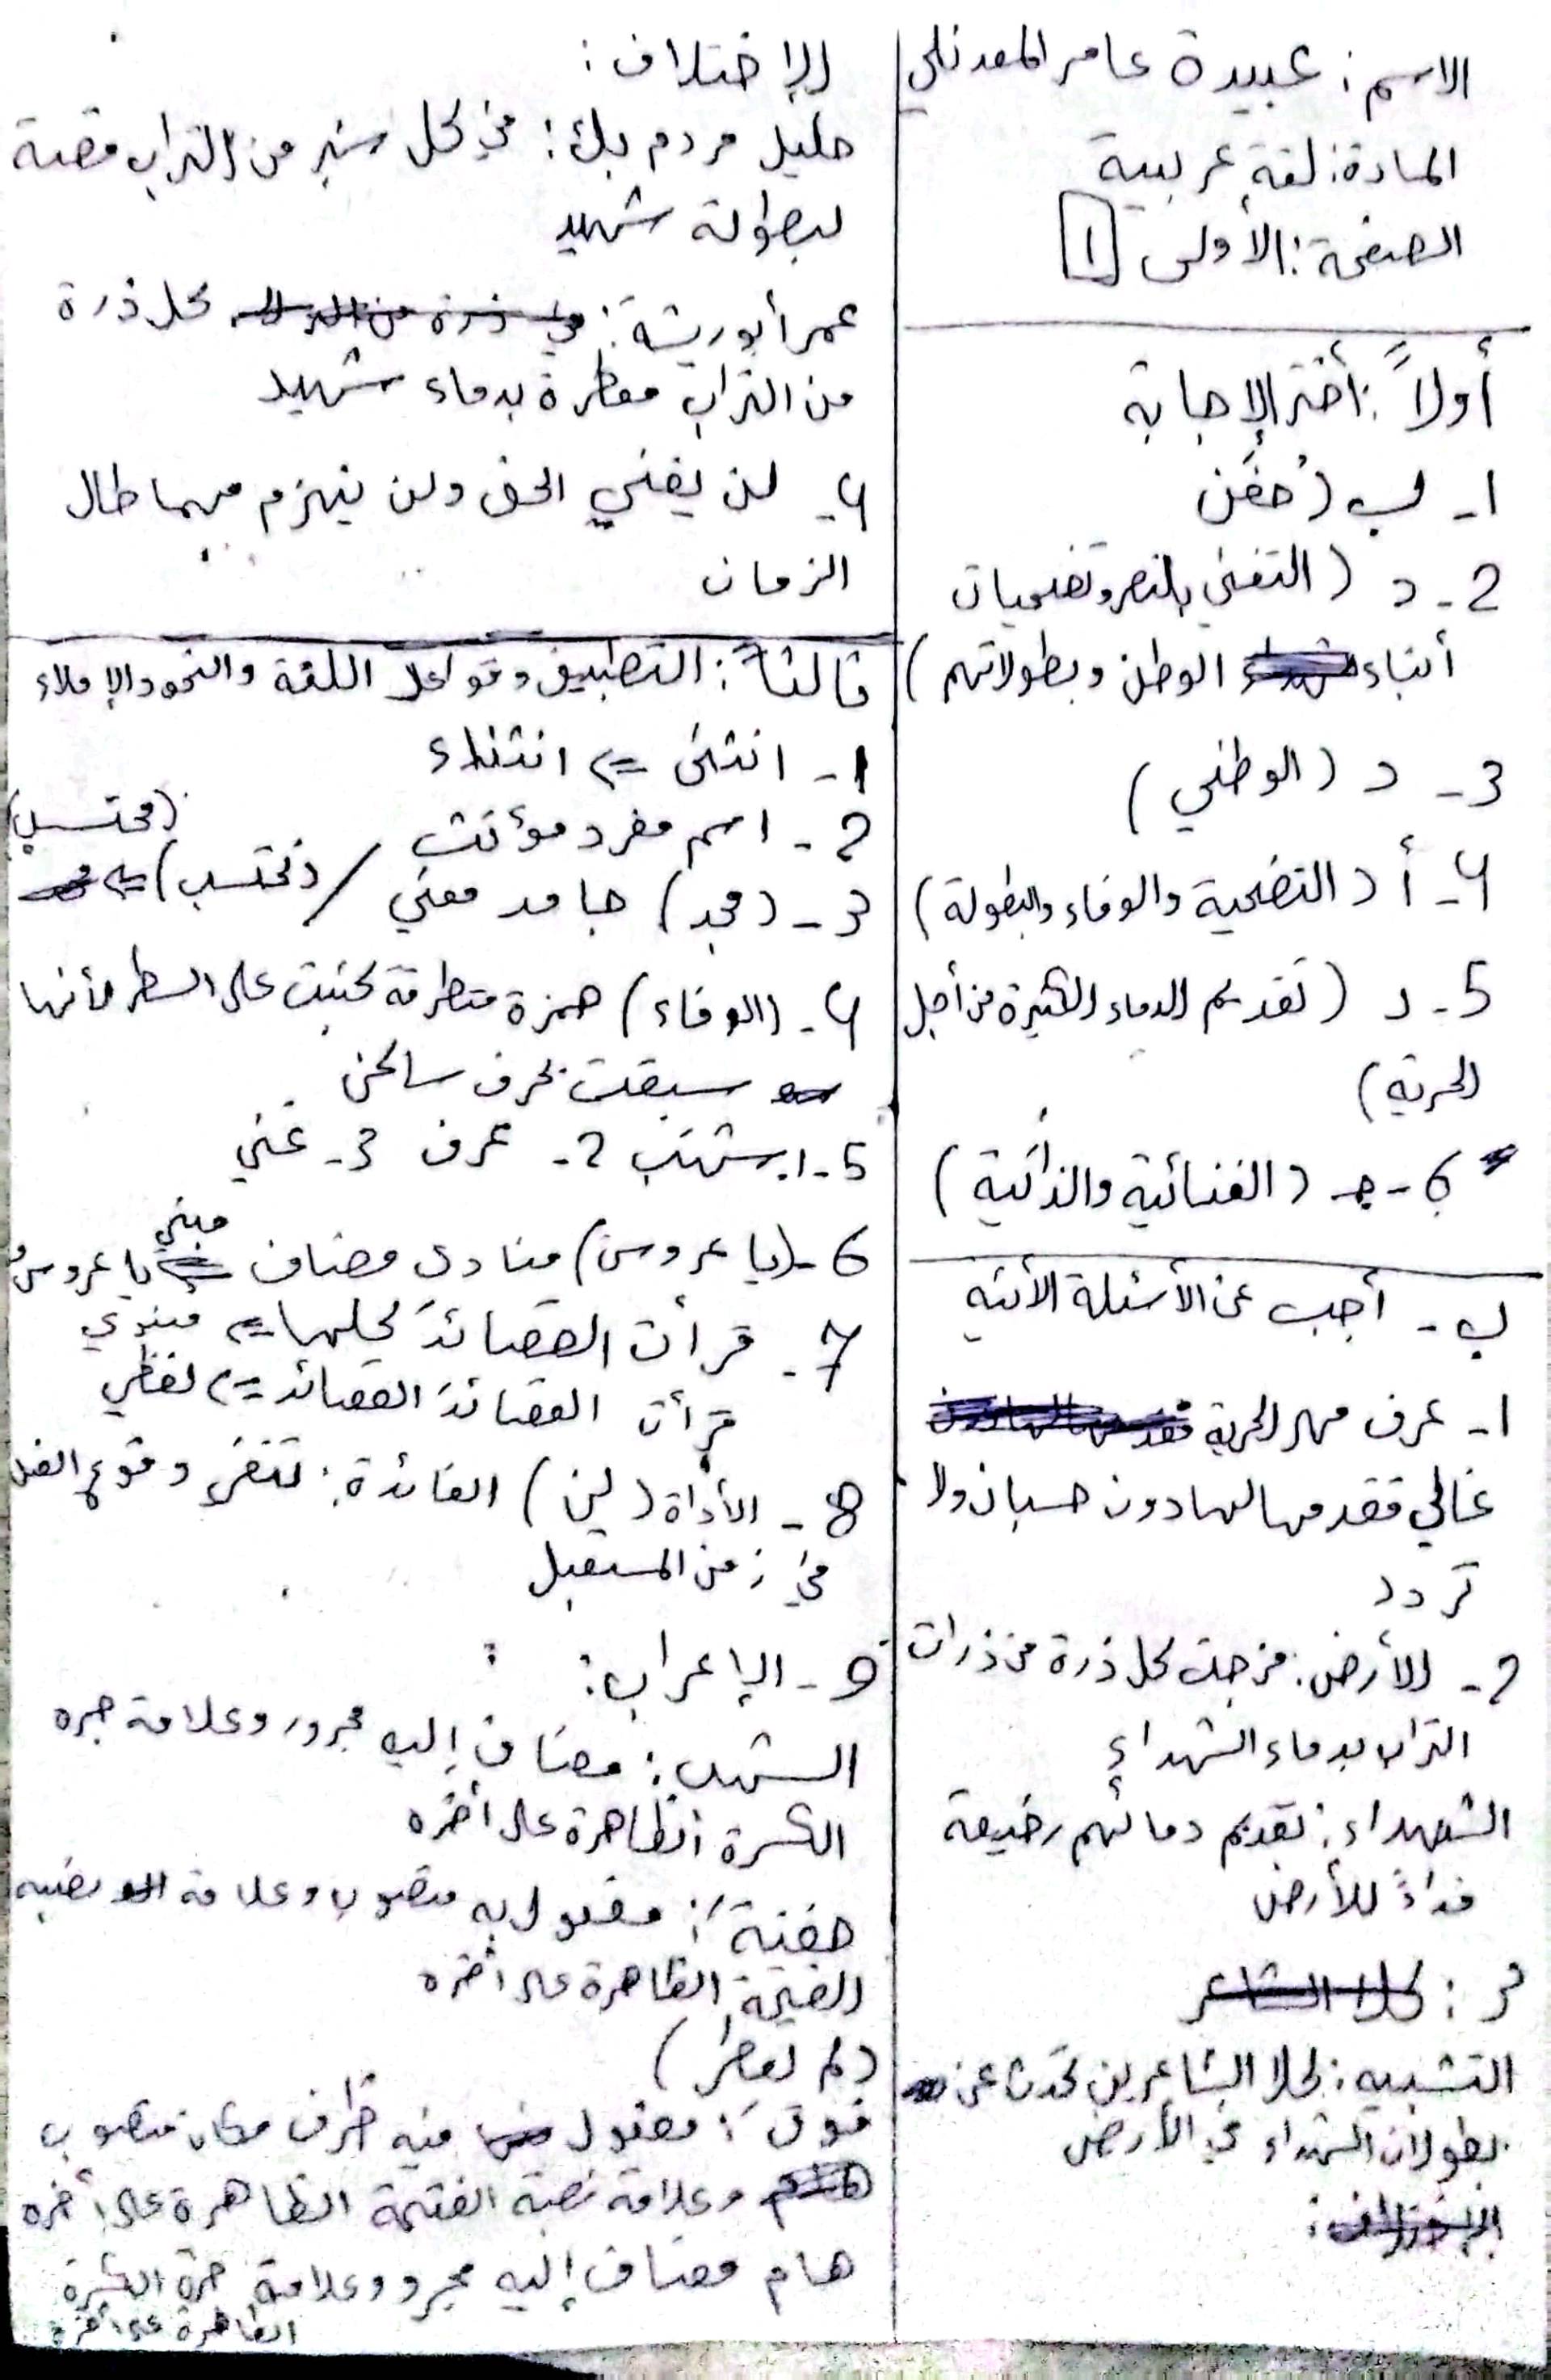 الاسم : عبيدة عامر المعدنلي
المادة : لغة عربية
الصفحة : الأولى ١
أولاً : أختر الإجابة
1- ب ( حفَن
2- د ( التغني بالنصر وتضحيات
أبناء الوطن وبطولاتهم )
3- د ( الوطني )
4- أ ( التضحية والوفاء والبطولة )
5- د ( تقديم الدماء الكثيرة من أجل
الحرية )
6- جـ ( الغنائية والذاتية )
ب- أجب عن الأسئلة الأتية
1- عرف مهر الحرية
غالي فقدمها لها دون حسبان ولا
تردد
2- الأرض : مزجت كل ذرة من ذرات
التراب بدماء الشهداء
الشهداء : تقديم دمائهم رخيصة
فداءً للأرض
3 : كلا الشاعر
التشبيه : كلا الشاعرين تحدث عن
بطولات الشهداء في الأرض
الإختلاف :
الإختلاف :
خليل مردم بك : في كل شبر من التراب قصة
لبطولة شهيد
عمر أبو ريشة : كل ذرة
من التراب معطرة بدماء شهيد
4- لن يفني الحق ولن ينهزم مهما طال
الزمان
ثالثاً : التطبيق وقواعد اللغة والنحو والإملاء
1- انتشى => انتشاء
2- اسم مفرد مؤنث
3- (مجد) جامد معني / (نحتسب) => (محتسب)
4- (الوفاء) همزة متطرفة كتبت على السطر لأنها
سبقت بحرف ساكن
5- 1. شهَب 2- عرف 3- غني
6- (يا عروسَ) منادى مضاف مبني يا عروسُ
7- قرأت القصائدَ كلها => معنوي
قرأت القصائدَ القصائد => لفظي
8- الأداة (لن) الفائدة : تنفي وقوع الفعل
في زمن المستقبل
9- الإعراب :
الشهب : مضاف إليه مجرور وعلامة جره
الكسرة الظاهرة على أخره
حفنةً : مفعول به منصوب وعلامة نصبه
الفتحة الظاهرة على أخره
(لم تعطر)
فوقَ : مفعول فيه ظرف مكان منصوب
وعلامة نصبه الفتحة الظاهرة على أخره
هام مضاف إليه مجرو وعلامة جره الكسرة
الظاهرة على أخره